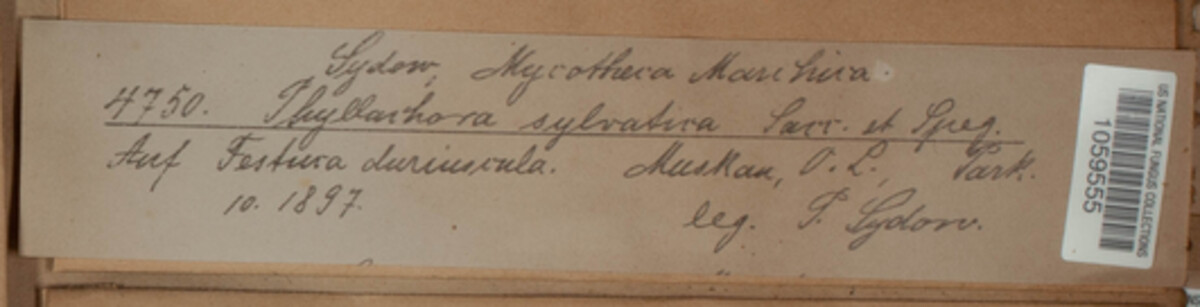 Sydow, Mycotheca Marchica
4750. Phyllachora sylvatica Sacc. et Speg.
Auf Festuca duriuscula. Muskau, O. L., Park.
10. 1897. leg. P. Sydow.
US NATIONAL FUNGUS COLLECTIONS
1059555